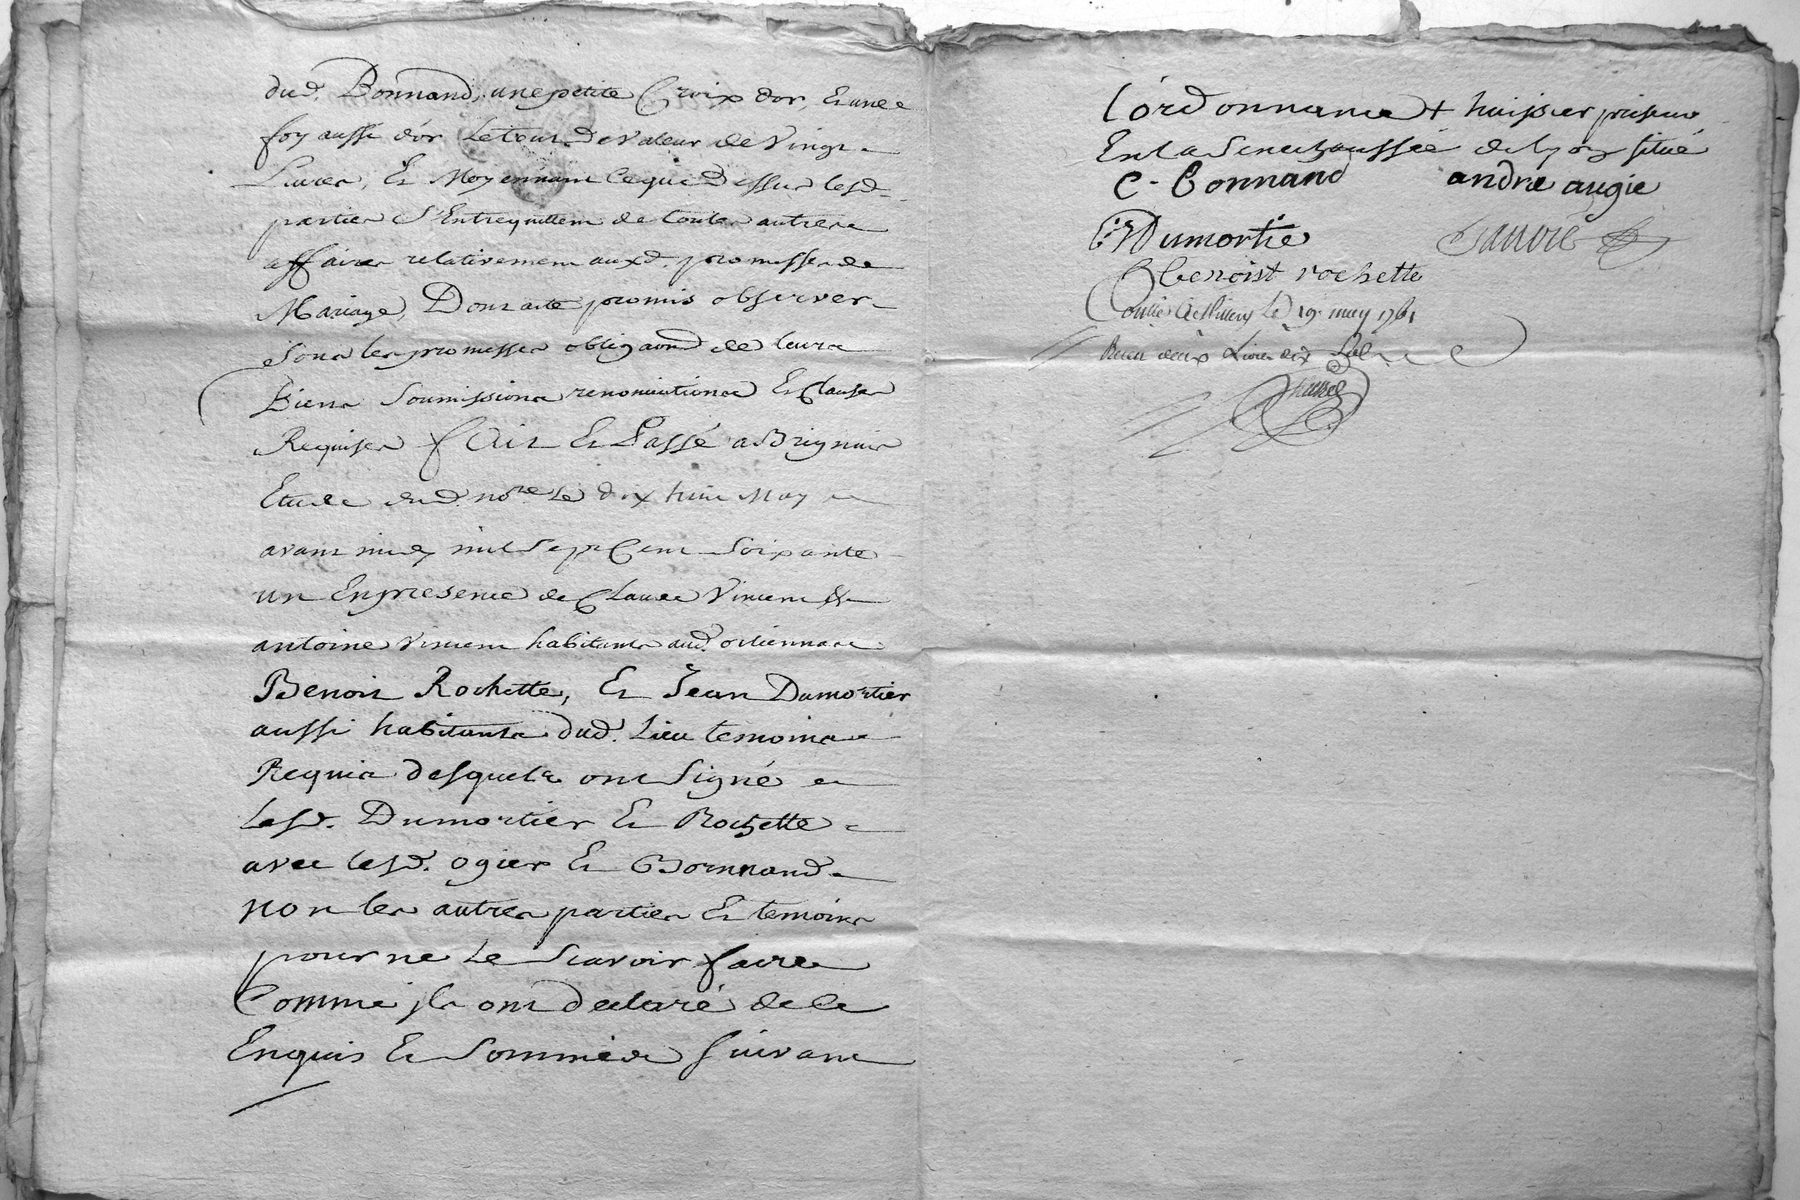 dud. Bonnand, une petite Croix dor, Et une
foy aussi dor Le tout de Valeur de Vingt
Livres, Et Moyennant Ce que Dessus lesd.
parties S'Entrequittent de toutes autres
affaires relativement auxd. promesses de
Mariage, Dont acte promis observer
Sous les promesses obligaond de leurs
Biens Soumissions renonciations Et Clauses
Requises fait Et Passé a Brignais
Etude dud. nore Le dix huit May
avant midy mil Sept Cent Soixante
un En presence de Claude Vincent &
antoine Vincent habitants aud. orliennas
Benoit Rochette, Et Jean Dumortier
aussi habitants dud. Lieu temoins
Requis desquels ont Signé
Lesd. Dumortier Et Rochette
avec lesd. ogier Et Bonnand
non les autres parties Et temoins
pour ne Le Scavoir faire
Comme jls ont declaré de ce
Enquis Et Sommés Suivant
l'ordonnance + huissier priseur
En la Senechaussée de lyon situé
C. Bonnand andré augie
Dumortie
benoist rochette
Le 19 may 1761
Recu deux Livres dix